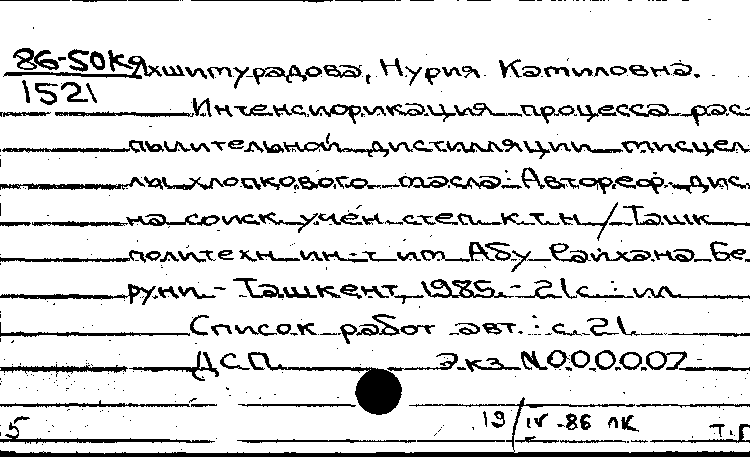 86-50К Яхшимурадова, Нурия Камиловна.
1521
Интенсификация процесса рас
пылительной дистилляции мисцел
лы хлопкового масла: Автореф. дис
на соиск. учен. степ. к.т.н. / Ташк
политехн. ин-т им Абу Райхана Бе
руни. - Ташкент, 1985. - 21с.: ил
Список работ авт.: с. 21.
ДСП. Экз N000007
5 19/IV-86 лк Т.П